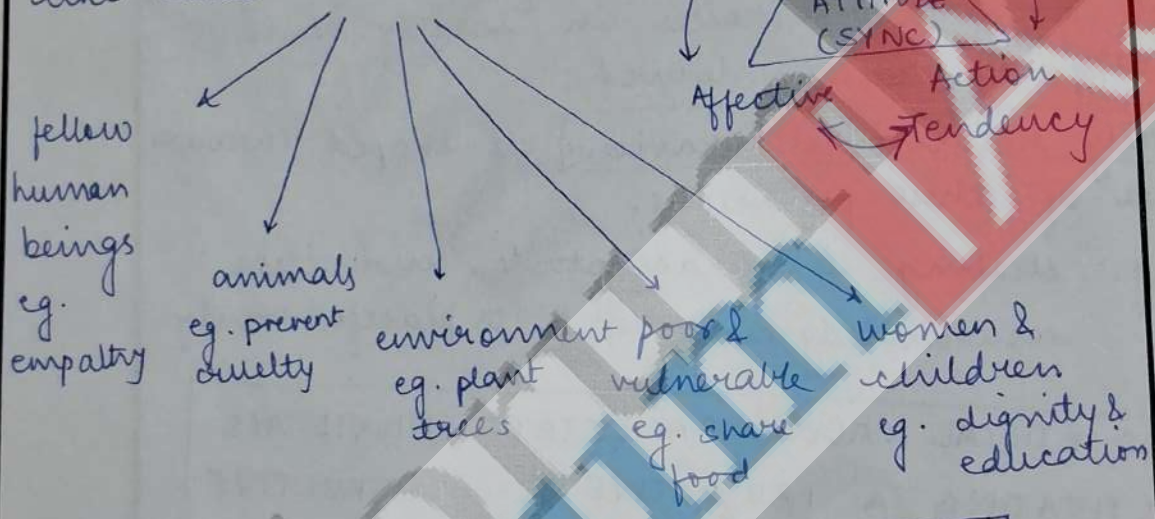 ATTITUDE
(SYNC)
Affective
Action
Tendency
fellow
human
beings
eg.
empathy
animals
eg. prevent
cruelty
environment
eg. plant
trees
poor &
vulnerable
eg. share
food
women &
children
eg. dignity &
education